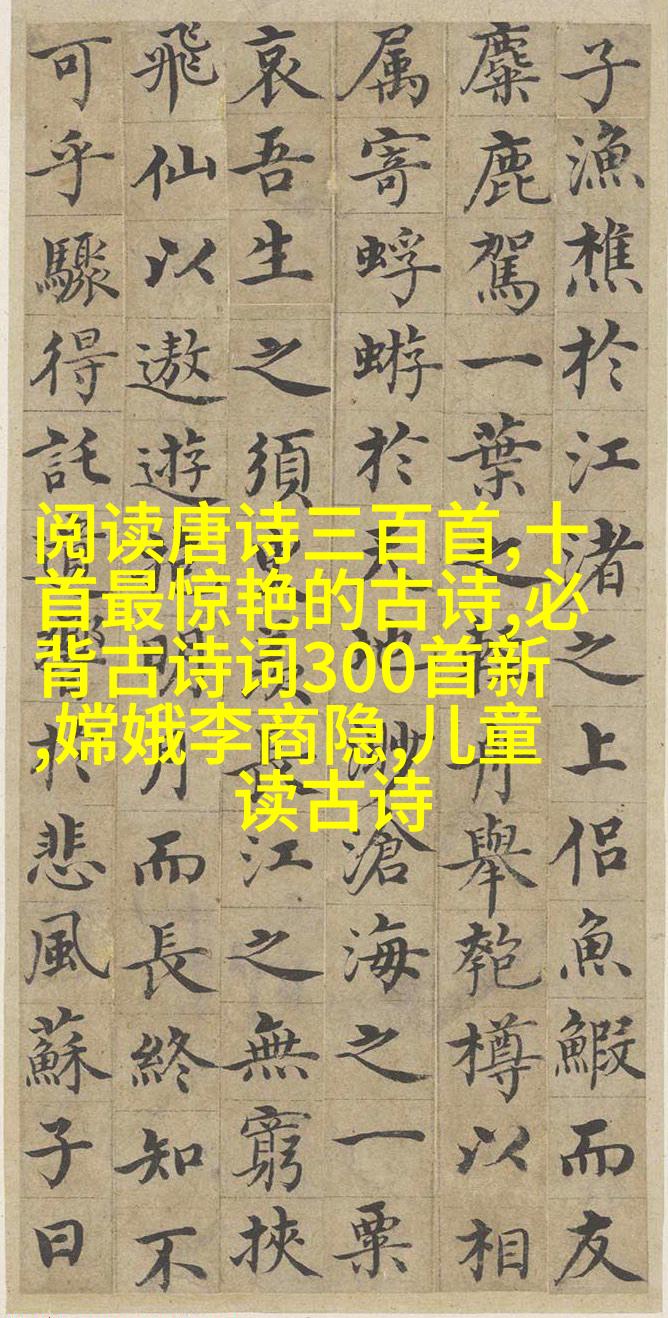 子漁樵於江渚之上侶魚鰕而友
麋鹿駕一葉之舟舉匏樽以相
属寄蜉蝣於天地渺滄海之一粟
哀吾生之須臾羨長江之無窮挾
飛仙以遨遊抱明月而長終知不
可乎驟得託遺響於悲風蘇子曰
阅读唐诗三百首,十
首最惊艳的古诗,必
背古诗词300首新
,嫦娥李商隐,儿童
读古诗